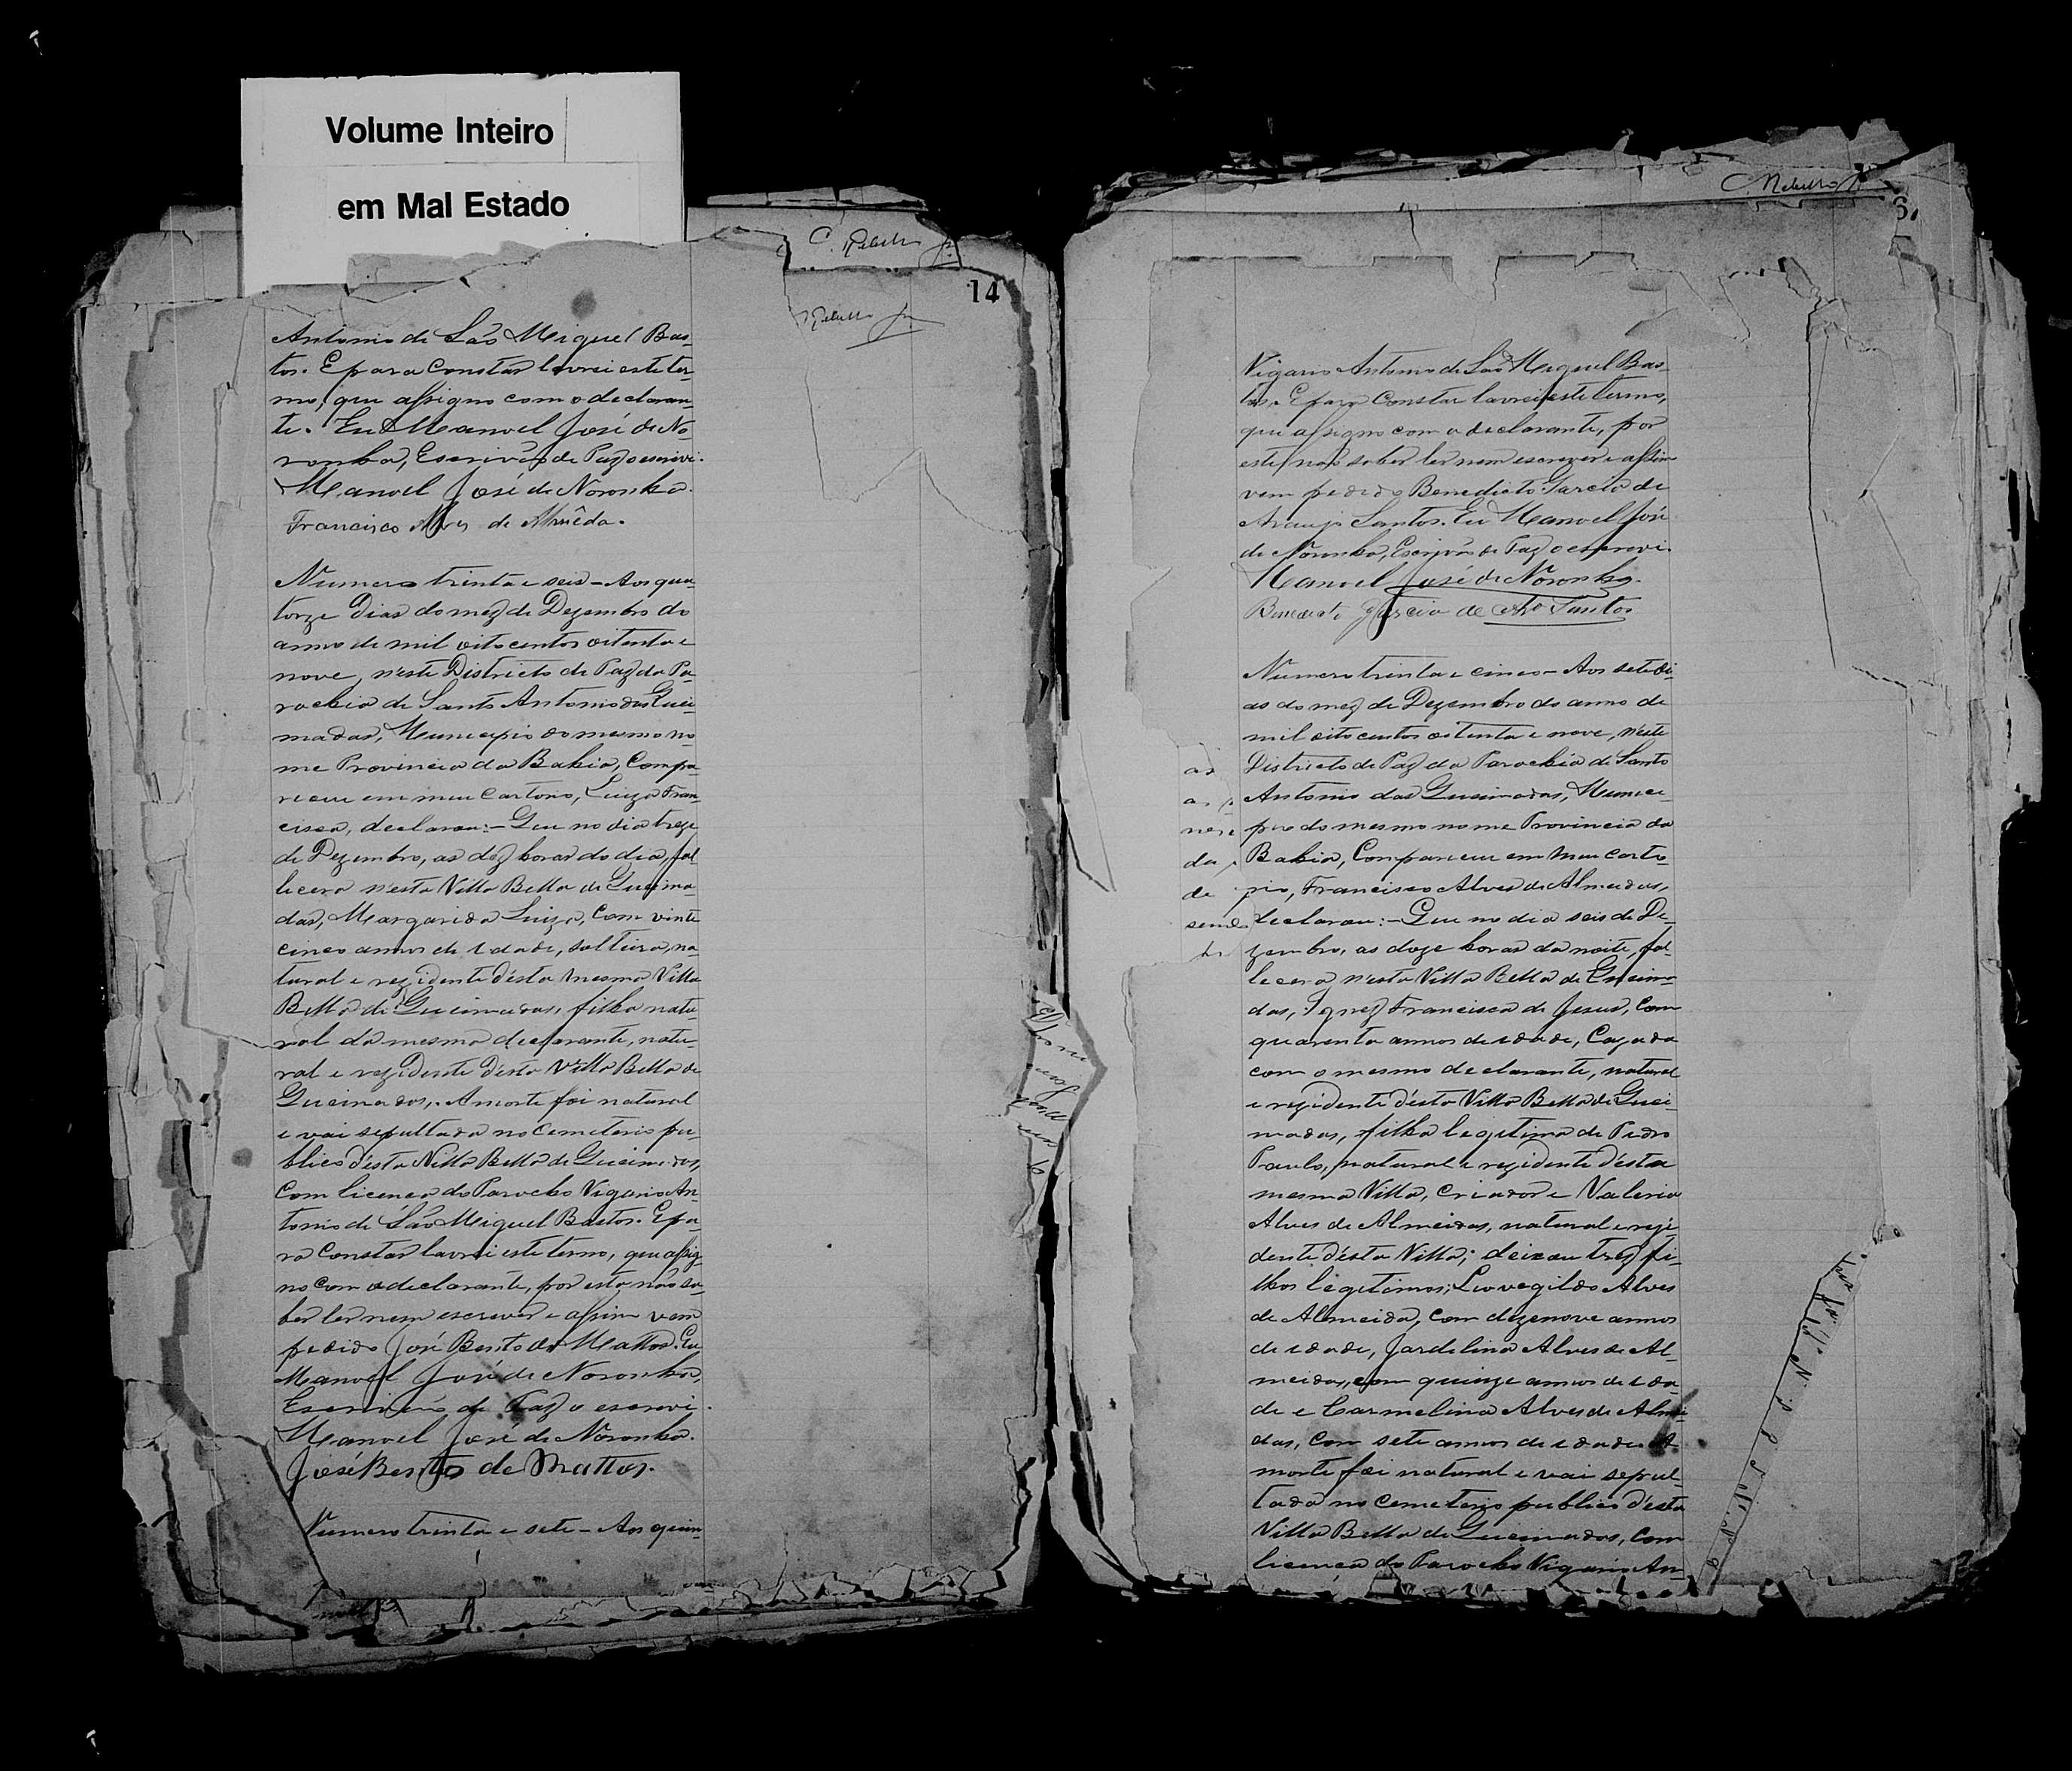 Volume Inteiro
em Mal Estado
14
Antonio de São Miguel Bas-
tos. E para constar lavrei este ter-
mo, que assigno com o declaran-
te. Eu Manoel José de No-
ronha, Escrivão de Paz o escrevi.
Manoel José de Noronha.
Francisco Alves de Almêda.
Numero trinta e seis - Aos qua-
torze dias do mez de Dezembro do
anno de mil oito centos oitenta e
nove, n'este Districto de Paz da Pa-
rochia de Santo Antonio das Quei-
madas, Municipio do mesmo no-
me Provincia da Bahia, Compa-
receu em meu Cartorio, Luiza Fran-
cisca, declarou: - Que no dia treze
de Dezembro, as dez horas do dia, fal-
lecera n'esta Villa Bella de Queima-
das, Margarida Luiza, com vinte
cinco annos de idade, solteira, na-
tural e rezidente d'esta mesma Villa
Bella de Queimadas, filha natu-
ral da mesma declarante, natu-
ral e rezidente d'esta Villa Bella de
Queimadas,. A morte foi natural
e vai sepultada no Cemeterio pu-
blico d'esta Villa Bella de Queimadas,
Com licença do Parocho Vigario An-
tonio de São Miguel Bastos. E pa-
ra constar lavrei este termo, que assig-
no com a declarante, por esta não sa-
ber ler nem escrever e assim vem
pedido José Bento de Mattos. Eu
Manoel José de Noronha,
Escrivão de Paz o escrevi.
Manoel José de Noronha.
José Bento de Mattos.
Numero trinta e sete - Aos quin-
Vigario Antonio de São Miguel Bas-
tos. E para Constar lavrei este termo,
que assigno com o declarante, por
este não saber ler nem escrever e assim
vem pedido Benedicto Garcia de
Araujo Santos. Eu Manoel José
de Noronha, Escrivão de Paz o escrevi.
Manoel José de Noronha.
Benedicto Garcia de Aro Santos
Numero trinta e cinco - Aos sete di-
as do mez de Dezembro do anno de
mil oito centos oitenta e nove, n'este
Districto de Paz da Parochia de Santo
Antonio das Queimadas, Munici-
pio do mesmo nome Provincia da
Bahia, Compareceu em meu carto-
rio, Francisco Alves de Almeidas,
declarou: - Que no dia seis de De-
zembro, as doze horas da noite, fal-
lecera n'esta Villa Bella de Queima-
das, Ignez Francisca de Jesus, com
quarenta annos de idade, Cazada
com o mesmo declarante, natural
e rezidente d'esta Villa Bella de Quei-
madas, filha legitima de Pedro
Paulo, natural e rezidente d'esta
mesma Villa, criador e Valeria
Alves de Almeidas, natural e rezi-
dente d'esta Villa; deixou trez fi-
lhos legitimos; Leovegildo Alves
de Almeida, com dezenove annos
de idade, Jardelina Alves de Al-
meidas, com quinze annos de ida-
de e Carmelina Alves de Almei-
das, com sete annos de idade. A
morte foi natural e vai sepul-
tada no Cemeterio publico d'esta
Villa Bella de Queimadas, com
licença do Parocho Vigario An-